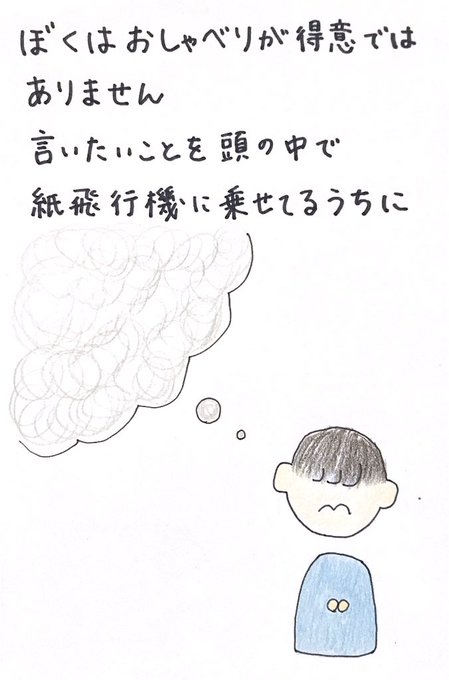 ぼくはおしゃべりが得意では
ありません
言いたいことを頭の中で
紙飛行機に乗せてるうちに